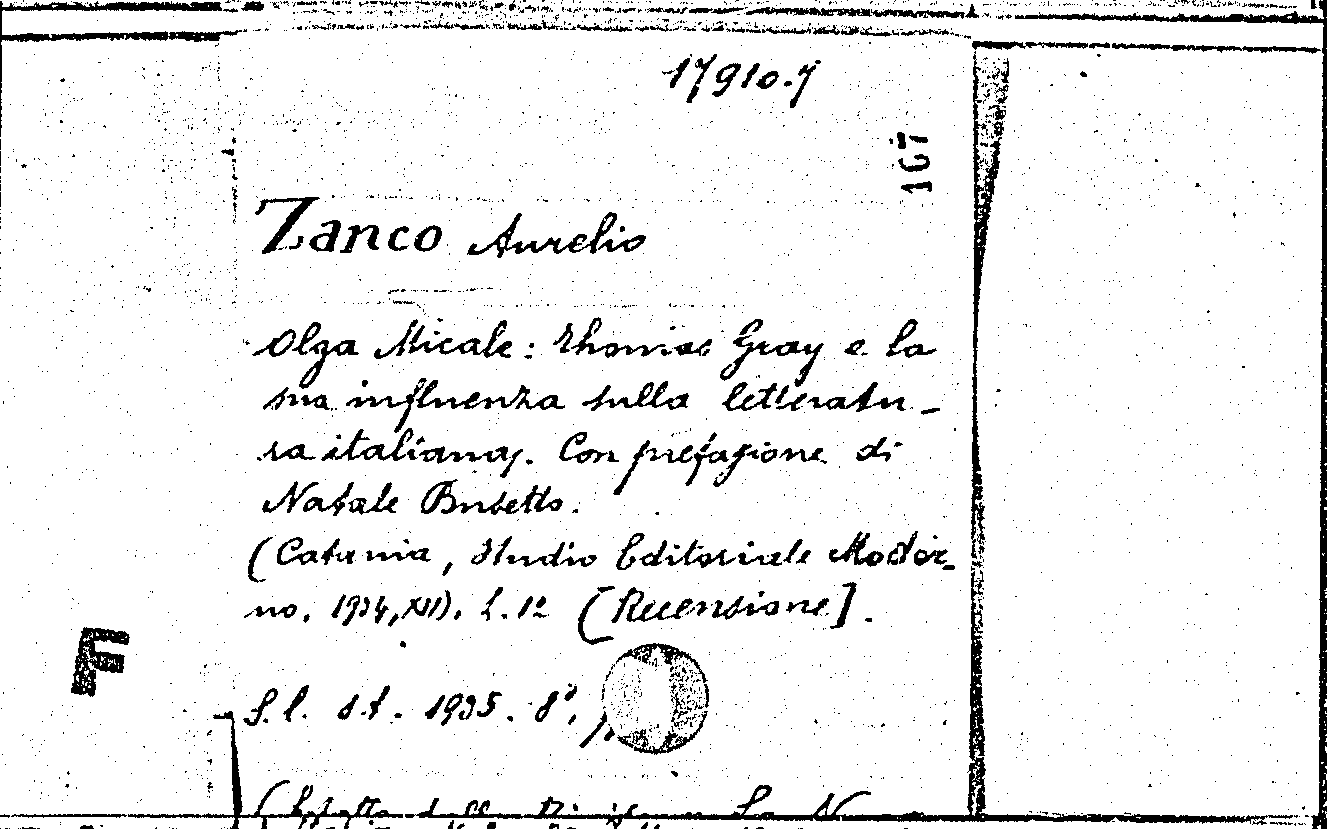 17910.7
167
Zanco Aurelio
Olga Micale: Thomas Gray e la
sua influenza sulla letteratu-
ra italiana. Con prefazione di
Natale Busetto.
(Catania, Studio Editoriale Moder-
no. 1934, XII). L. 12 [Recensione].
F
S.l. s.t. 1935. 8°,